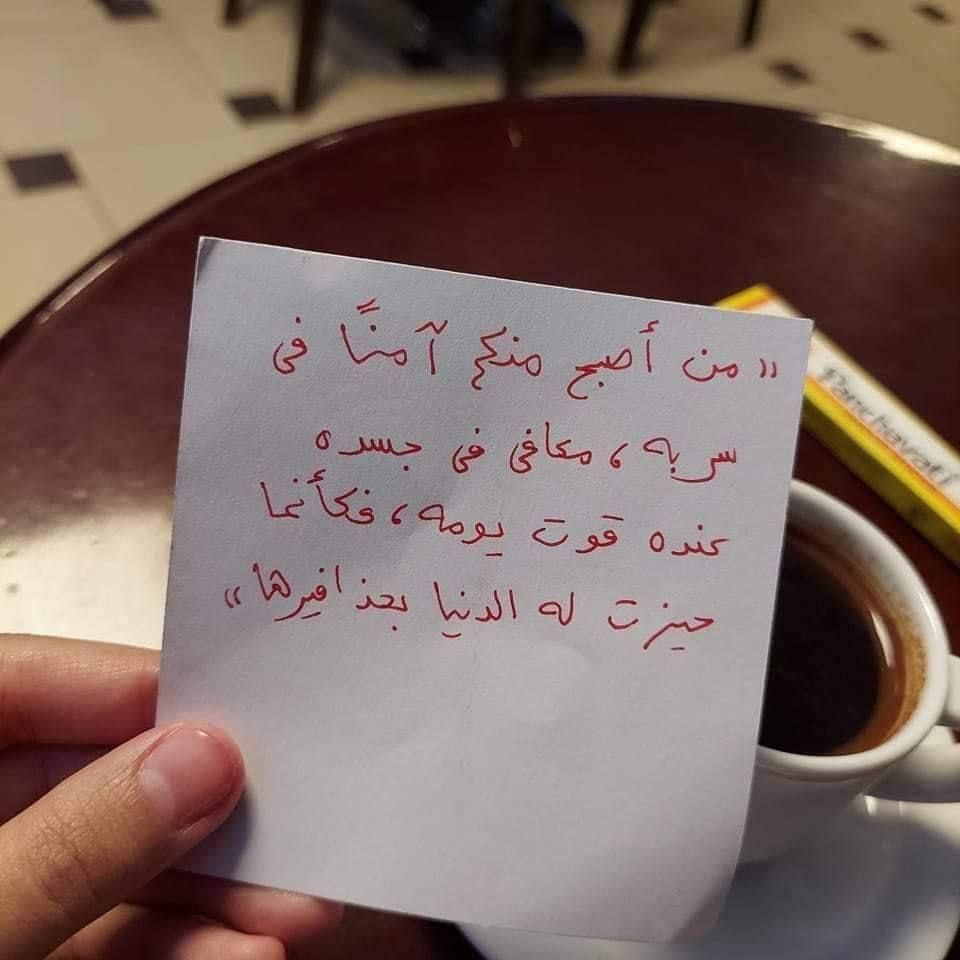 « من أصبح منكم آمنًا في
سربه، معافى في جسده
عنده قوت يومه، فكأنما
حيزت له الدنيا بحذافيرها »
Panchavati